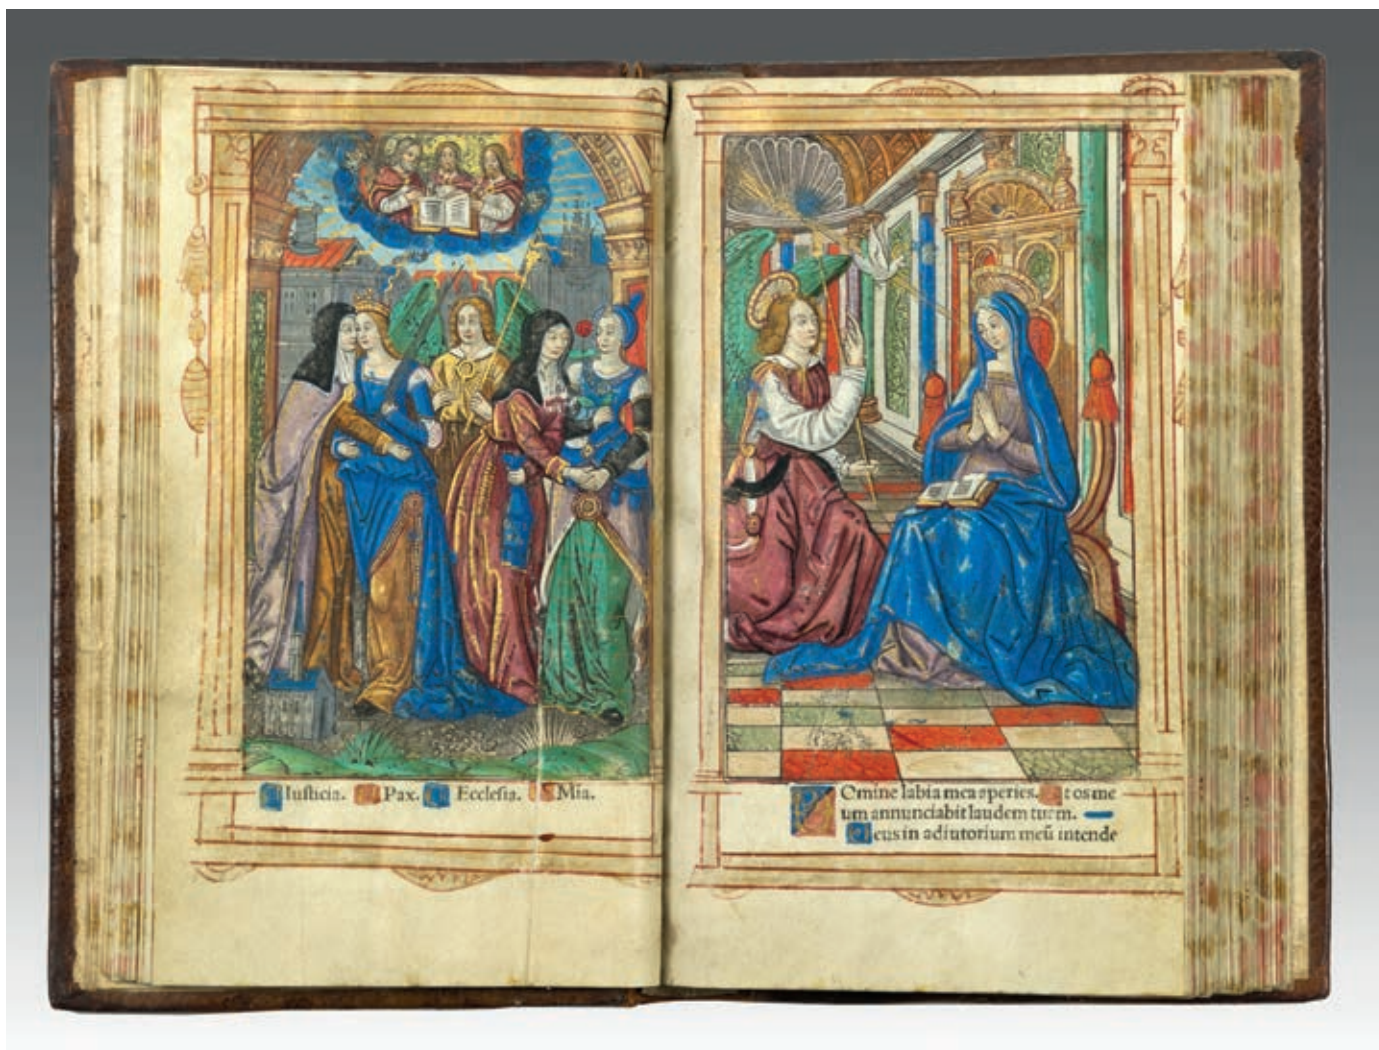 Iusticia. Pax. Ecclesia. Mia.
Omine labia mea aperies. Et os me
um annunciabit laudem tuam.
Deus in adiutorium meũ intende